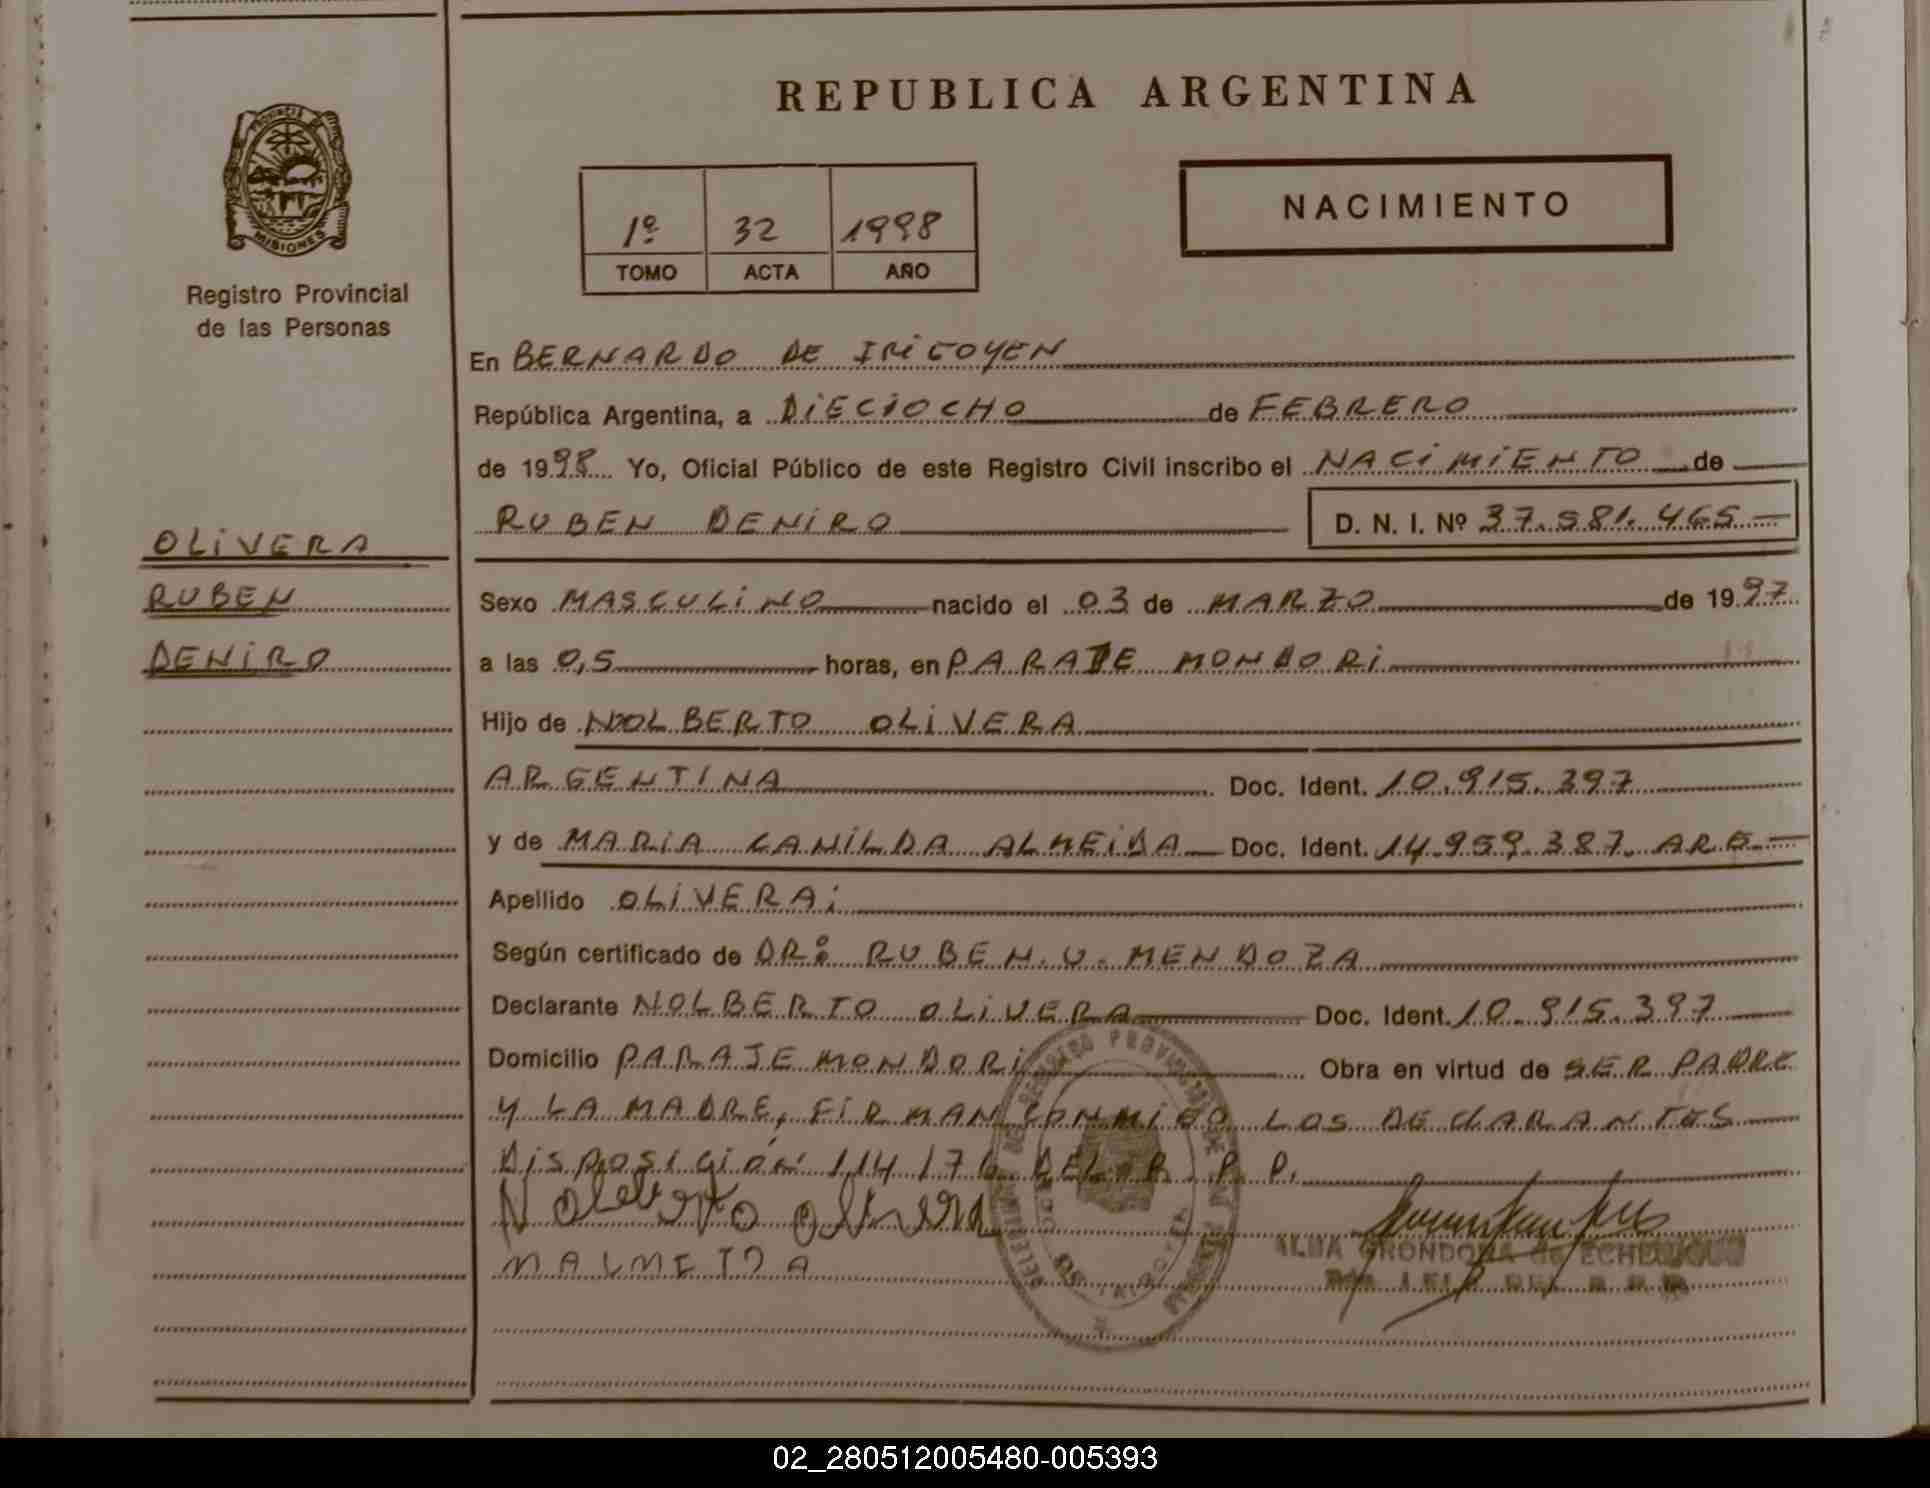 REPUBLICA ARGENTINA
PROVINCIA
MISIONES
Registro Provincial
de las Personas
1º 32 1998
TOMO ACTA AÑO
NACIMIENTO
En BERNARDO DE IRIGOYEN
República Argentina, a DIECIOCHO de FEBRERO
de 1998 Yo, Oficial Público de este Registro Civil inscribo el NACIMIENTO de
RUBEN DENIRO D. N. I. Nº 37.581.465
OLIVERA
RUBEN
DENIRO
Sexo MASCULINO nacido el 03 de MARZO de 1997
a las 0,5 horas, en PARAJE MONDORI
Hijo de NOLBERTO OLIVERA
ARGENTINA Doc. Ident. 10.915.397
y de MARIA ALMEIDA Doc. Ident. 14.959.387. ARG
Apellido OLIVERA;
Según certificado de DR: RUBEN.U. MENDOZA
Declarante NOLBERTO OLIVERA Doc. Ident. 10.915.397
Domicilio PARAJE MONDORI Obra en virtud de SER PADRE
Y LA MADRE, FIRMAN CONMIGO LOS DECLARANTES
DISPOSICIÓN 114/76 DEL R. P. P.
Nolberto Olivera
ALBA GRONDONA de
02_280512005480-005393